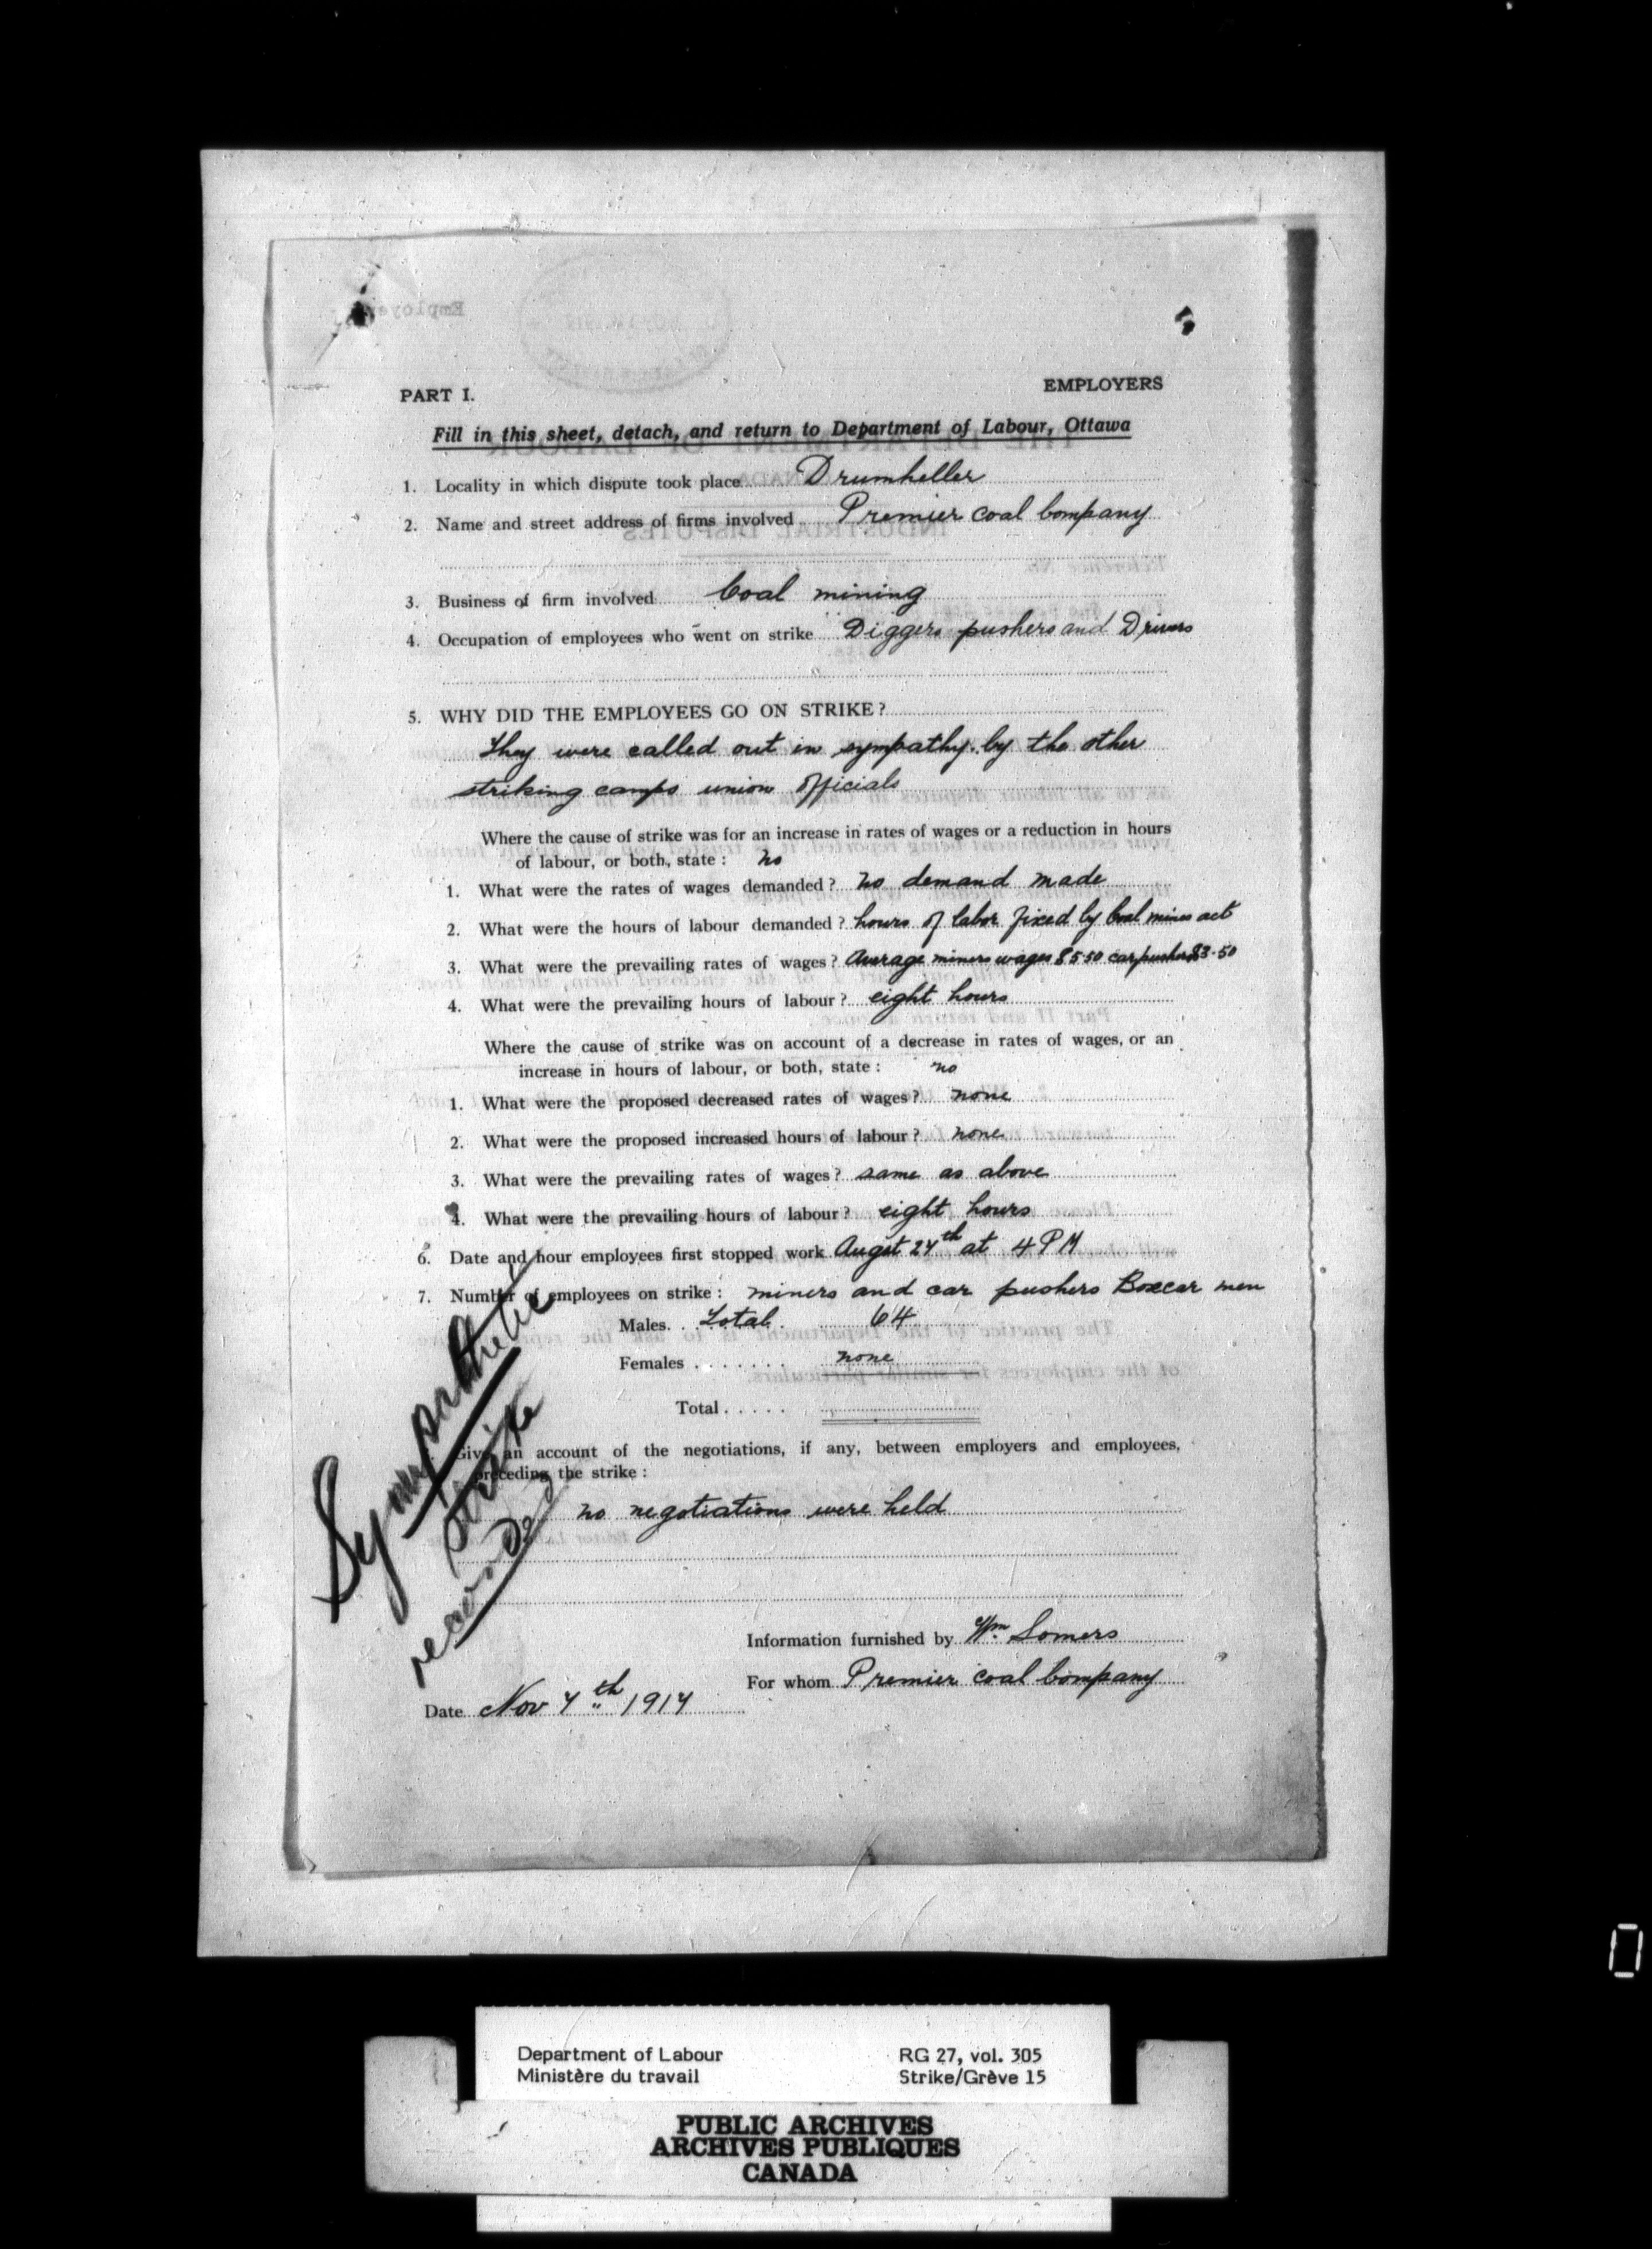 PART I.
EMPLOYERS
Fill in this sheet, detach, and return to Department of Labour, Ottawa
1. Locality in which dispute took place Drumheller
2. Name and street address of firms involved Premier coal Company
3. Business of firm involved Coal mining
4. Occupation of employees who went on strike Diggers pushers and Drivers
5. WHY DID THE EMPLOYEES GO ON STRIKE?
They were called out in sympathy by the other
striking camps union officials
Where the cause of strike was for an increase in rates of wages or a reduction in hours
of labour, or both, state : no
1. What were the rates of wages demanded? no demand made
2. What were the hours of labour demanded? hours of labor fixed by Coal mines act
3. What were the prevailing rates of wages? Average miners wages $5.50 car pushers $3.50
4. What were the prevailing hours of labour? eight hours
Where the cause of strike was on account of a decrease in rates of wages, or an
increase in hours of labour, or both, state : no
1. What were the proposed decreased rates of wages? none
2. What were the proposed increased hours of labour? none
3. What were the prevailing rates of wages? same as above
4. What were the prevailing hours of labour? eight hours
6. Date and hour employees first stopped work Augst 24th at 4 PM
7. Number of employees on strike : miners and car pushers Boxcar men
Males. . Total 64
Females . . . . . . . none
Total . . . . .
Give an account of the negotiations, if any, between employers and employees,
preceding the strike :
no negotiations were held
Sympathetic
Strike
Information furnished by Wm Somers
For whom Premier coal Company
Date Nov 7th 1917
Department of Labour
Ministère du travail
RG 27, vol. 305
Strike/Grève 15
PUBLIC ARCHIVES
ARCHIVES PUBLIQUES
CANADA